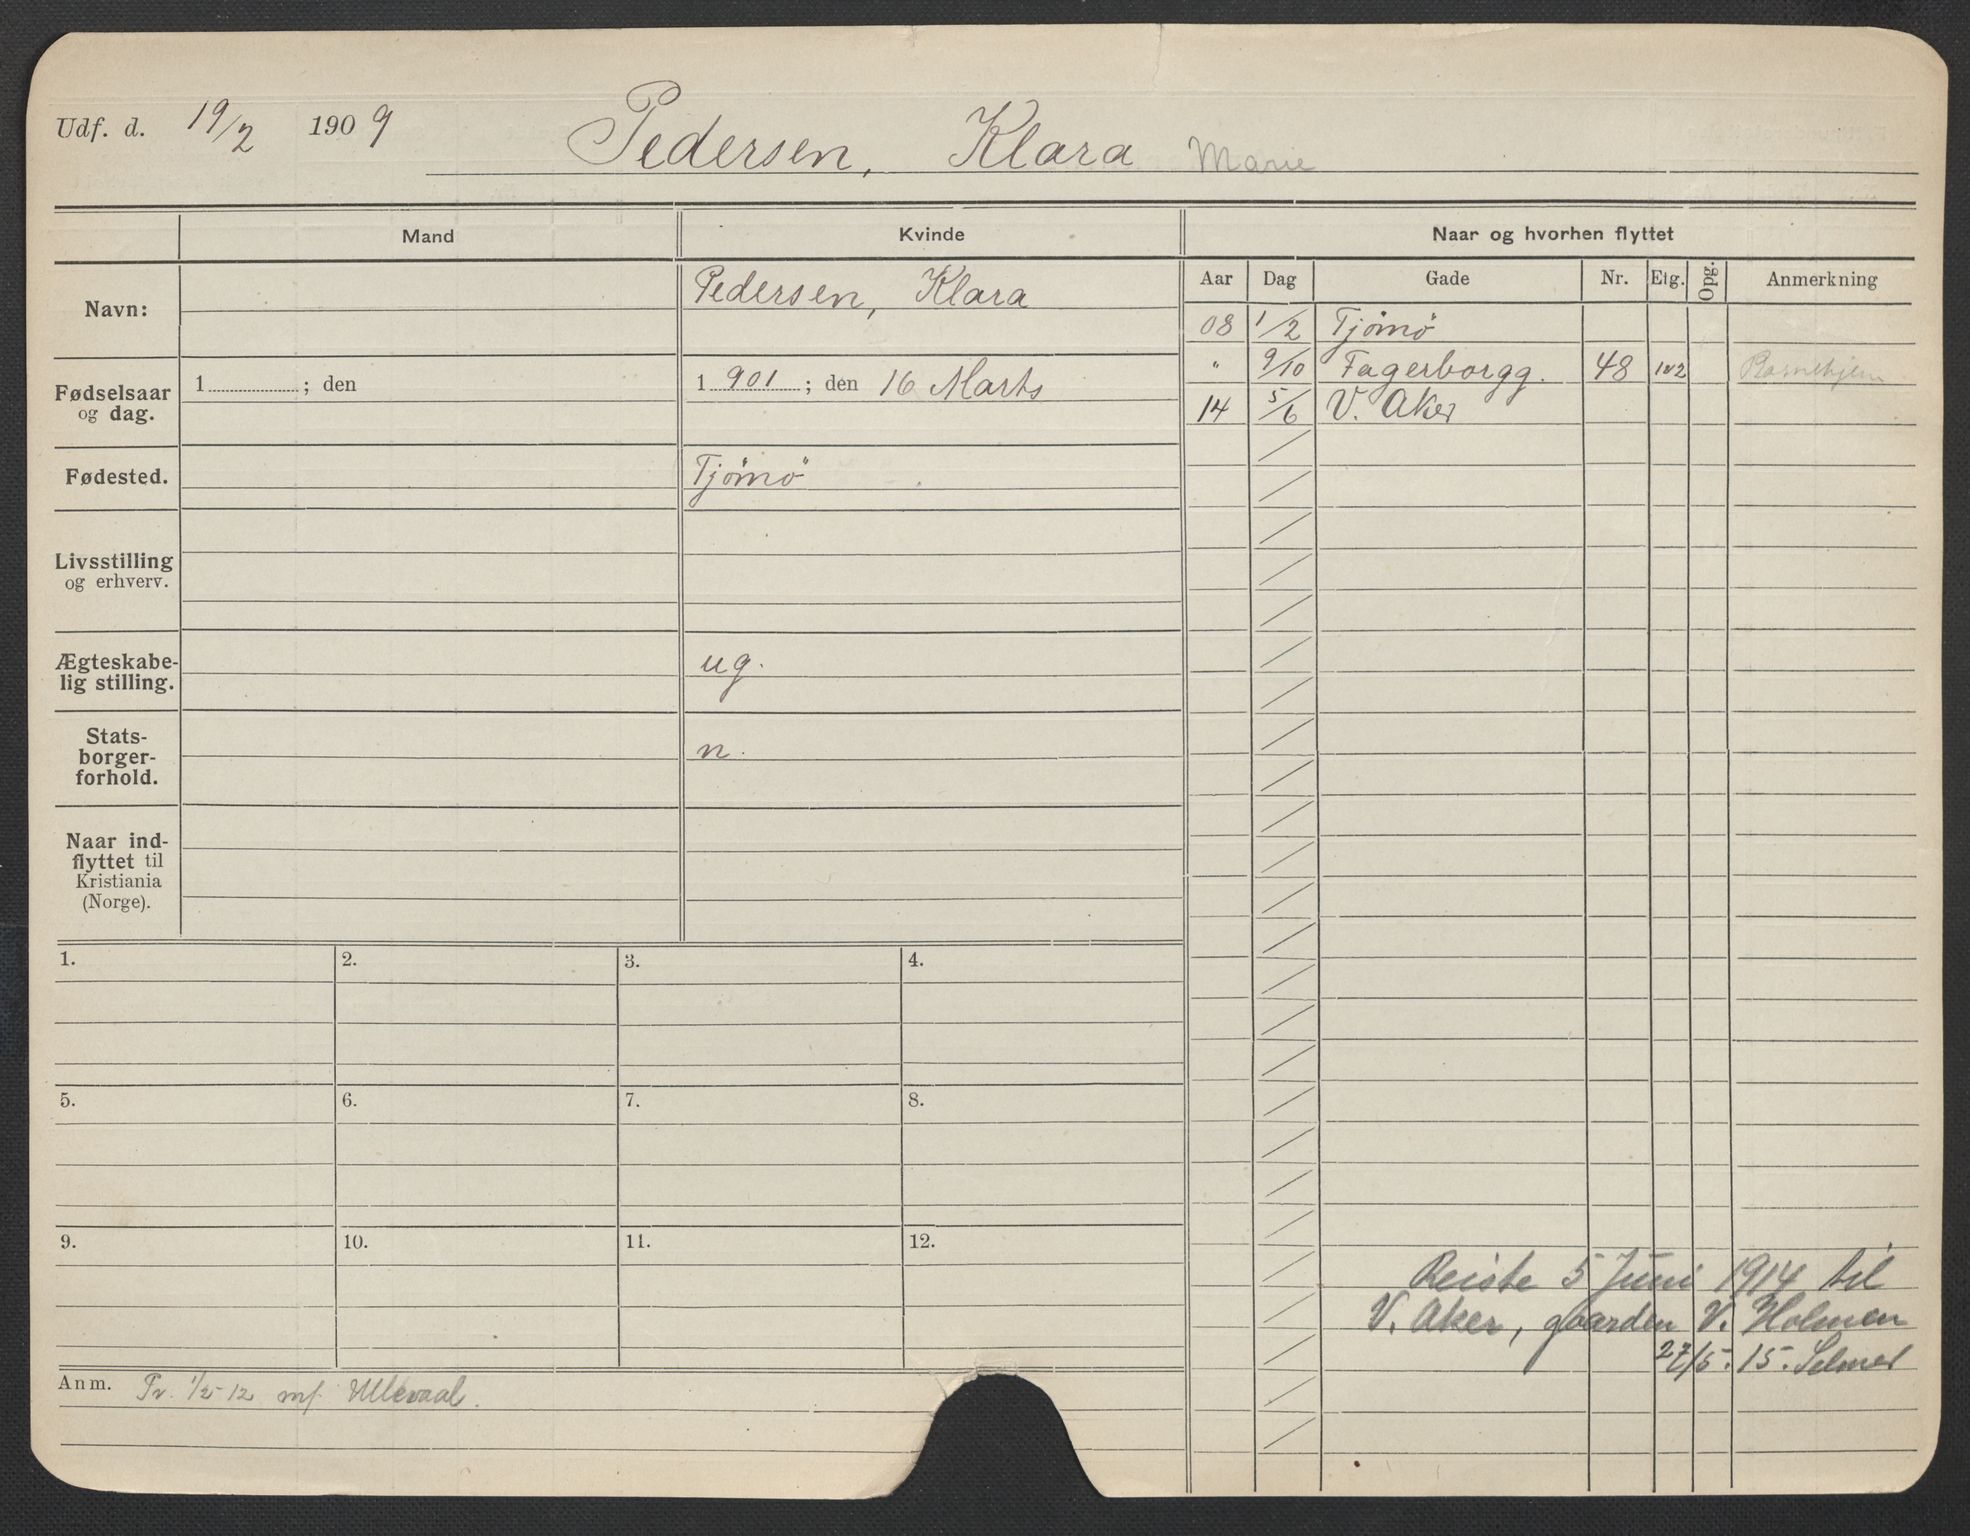 Udf. d. 19/2 1909 Pedersen, Klara Marie
Mand Kvinde Naar og hvorhen flyttet
Aar Dag Gade Nr. Etg. Opg. Anmerkning
Navn: Pedersen, Klara
08 1/2 Tjömö
" 9/10 Fagerborgg. 48 1v2 Barnehjem
14 5/6 V. Aker
Fødselsaar og dag. 1 ; den 1 901 ; den 16 Marts
Fødested. Tjömö
Livsstilling
og erhverv.
Ægteskabe-
lig stilling. ug.
Stats-
borger-
forhold. n.
Naar ind-
flyttet til
Kristiania
(Norge).
1. 2. 3. 4.
5. 6. 7. 8.
9. 10. 11. 12.
Reiste 5 Juni 1914 til
V. Aker, gaarden V. Holmen
27/5. 15. Selmer
Anm. Fr. 1/2-12 mf Ullevaal.